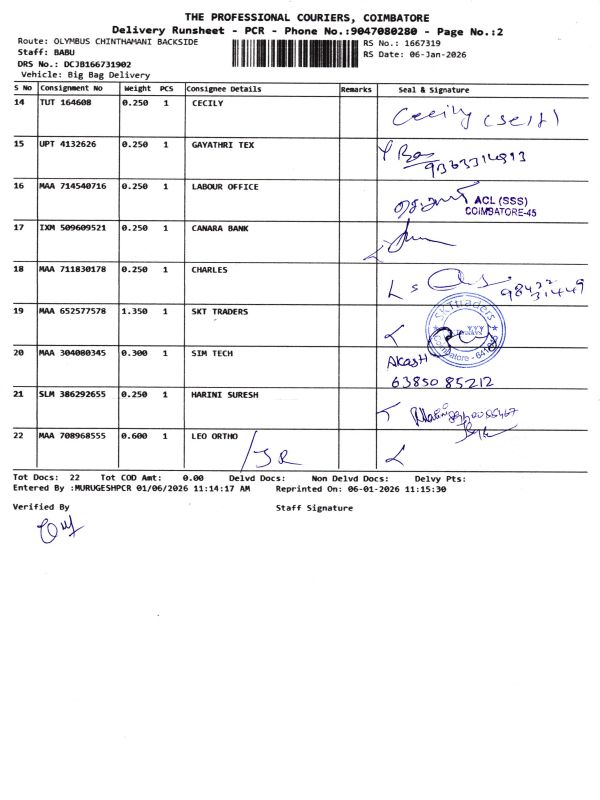 THE PROFESSIONAL COURIERS, COIMBATORE
Delivery Runsheet - PCR - Phone No.:9047080280 - Page No.:2
Route: OLYMBUS CHINTHAMANI BACKSIDE
RS No.: 1667319
Staff: BABU
RS Date: 06-Jan-2026
DRS No.: DCJB166731902
Vehicle: Big Bag Delivery
S No Consignment No Weight PCS Consignee Details Remarks Seal & Signature
14 TUT 164608 0.250 1 CECILY Cecily (self)
15 UPT 4132626 0.250 1 GAYATHRI TEX
16 MAA 714540716 0.250 1 LABOUR OFFICE ACL (SSS)
COIMBATORE-45
17 IXM 509609521 0.250 1 CANARA BANK
18 MAA 711830178 0.250 1 CHARLES
19 MAA 652577578 1.350 1 SKT TRADERS SKTraders
Coimbatore
20 MAA 304080345 0.300 1 SIM TECH Akash
63850 85212
21 SLM 386292655 0.250 1 HARINI SURESH
22 MAA 708968555 0.600 1 LEO ORTHO
Tot Docs: 22 Tot COD Amt: 0.00 Delvd Docs: Non Delvd Docs: Delvy Pts:
Entered By :MURUGESHPCR 01/06/2026 11:14:17 AM Reprinted On: 06-01-2026 11:15:30
Verified By Staff Signature